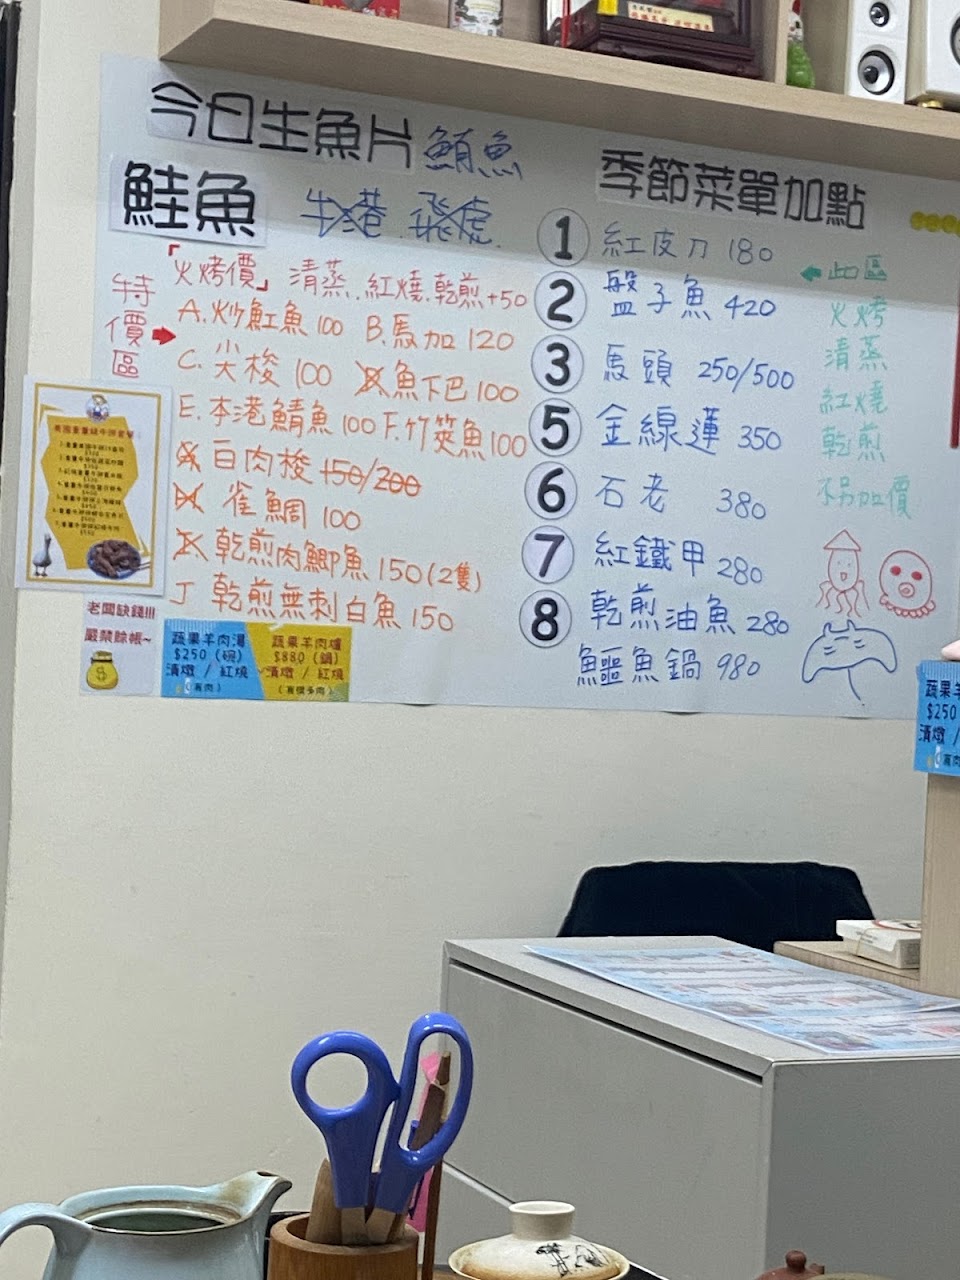 今日生魚片 鮪魚
鮭魚 牛港 飛虎
特價區
「火烤價」 清蒸.紅燒.乾煎+50
A.炒魟魚 100 B.馬加 120
C.尖梭 100 D.魚下巴 100
E.本港鯖魚 100 F.竹筴魚 100
G.白肉梭 150/200
H. 雀鯛 100
I.乾煎肉鯽魚 150(2隻)
J 乾煎無刺白魚 150
季節菜單加點
1 紅皮刀 180
2 盤子魚 420
3 馬頭 250/500
5 金線蓮 350
6 石老 380
7 紅鐵甲 280
8 乾煎油魚 280
鱷魚鍋 980
此區
火烤
清蒸
紅燒
乾煎
不另加價
老闆缺錢!!!
嚴禁賒帳~
$
蔬果羊肉湯
$250 (碗)
清燉 / 紅燒
蔬果羊肉爐
$880 (鍋)
清燉 / 紅燒
蔬果羊
$250
清燉 /